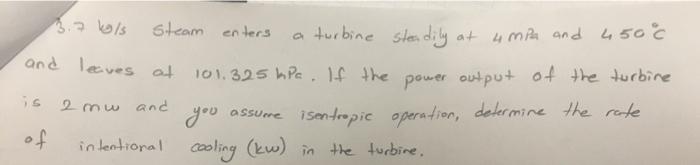 3.7 kg/s Steam enters a turbine steadily at 4 mPa and 450°c
and leaves at 101.325 hPc. If the power output of the turbine
is 2 mw and you assume isentropic operation, determine the rate
of intentional cooling (kw) in the turbine.